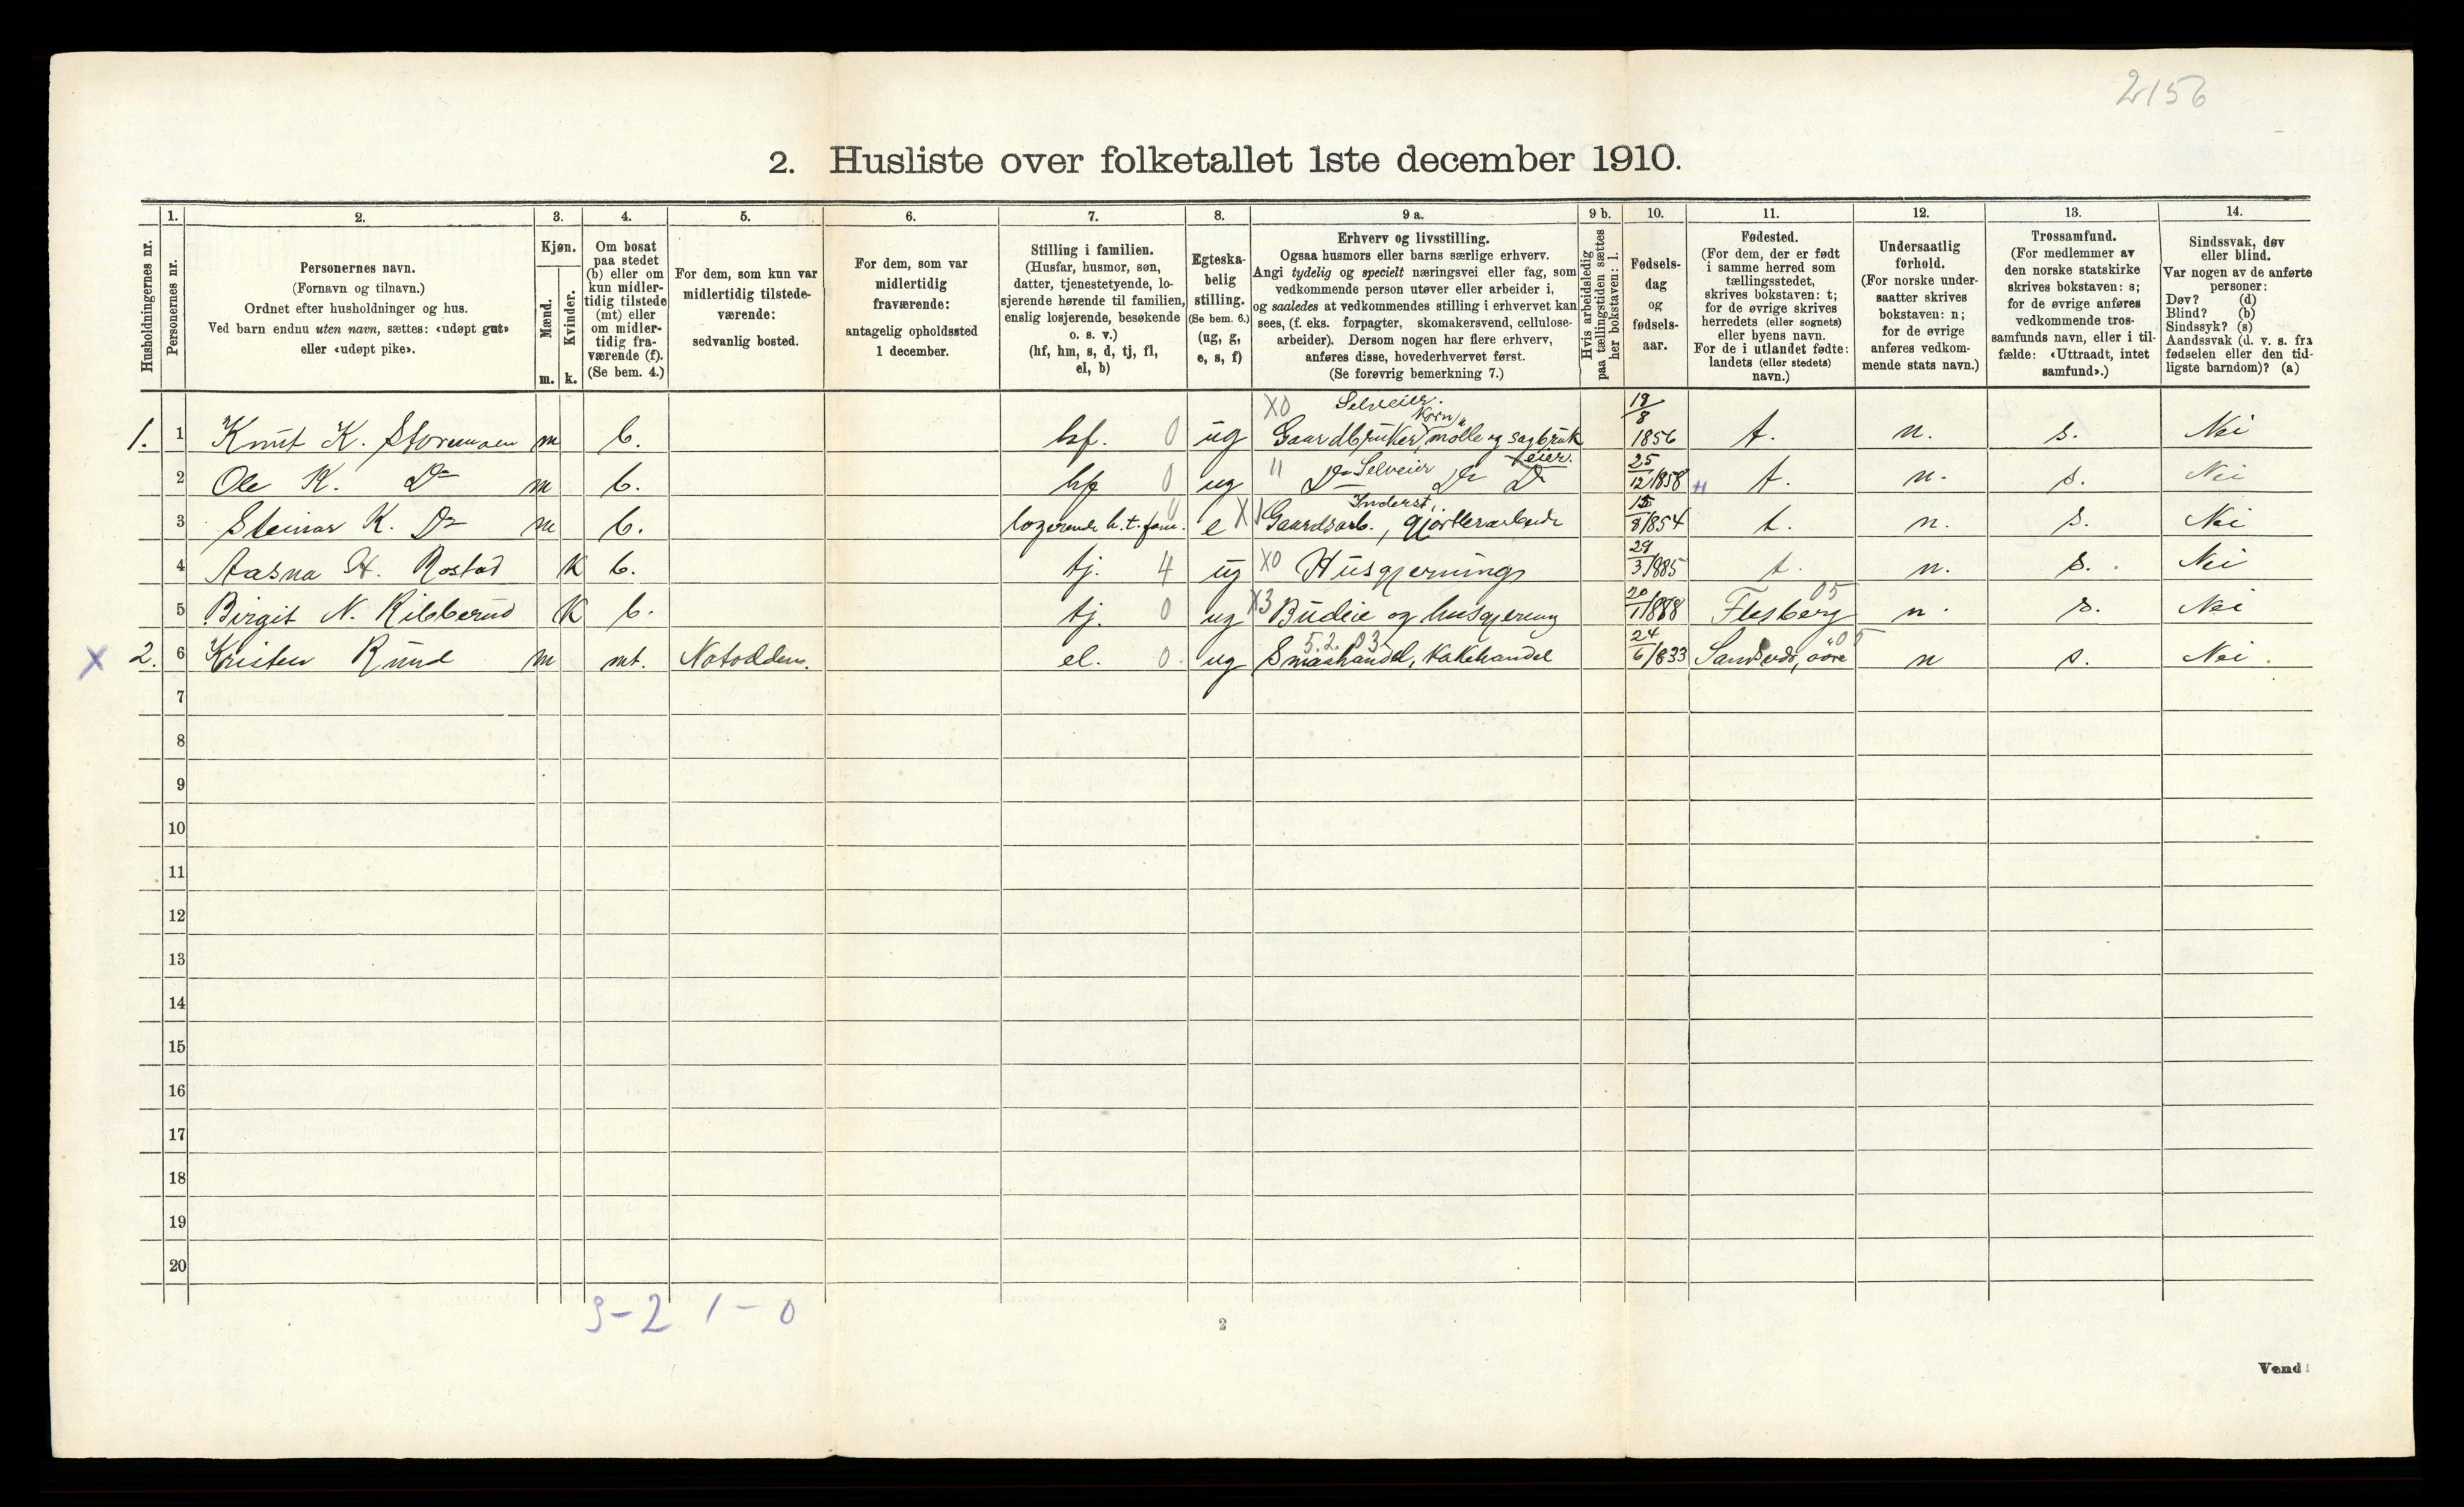 2156
2. Husliste over folketallet 1ste december 1910.
Husholdningernes nr.
1.
Personernes nr.
2.
Personernes navn.
(Fornavn og tilnavn.)
Ordnet efter husholdninger og hus.
Ved barn endnu uten navn, sættes: «udøpt gut»
eller «udøpt pike».
3.
Kjøn.
Mænd.
m.
Kvinder.
k.
4.
Om bosat
paa stedet
(b) eller om
kun midler-
tidig tilstede
(mt) eller
om midler-
tidig fra-
værende (f).
(Se bem. 4.)
5.
For dem, som kun var
midlertidig tilstede-
værende:
sedvanlig bosted.
6.
For dem, som var
midlertidig
fraværende:
antagelig opholdssted
1 december.
7.
Stilling i familien.
(Husfar, husmor, søn,
datter, tjenestetyende, lo-
sjerende hørende til familien,
enslig losjerende, besøkende
o. s. v.)
(hf, hm, s, d, tj, fl,
el, b)
8.
Egteska-
belig
stilling.
(Se bem. 6.)
(ug, g,
e, s, f)
9 a.
Erhverv og livsstilling.
Ogsaa husmors eller barns særlige erhverv.
Angi tydelig og specielt næringsvei eller fag, som
vedkommende person utøver eller arbeider i,
og saaledes at vedkommendes stilling i erhvervet kan
sees, (f. eks. forpagter, skomakersvend, cellulose-
arbeider). Dersom nogen har flere erhverv,
anføres disse, hovederhvervet først.
(Se forøvrig bemerkning 7.)
9 b.
Hvis arbeidsledig
paa tællingstiden sættes
her bokstaven: l.
10.
Fødsels-
dag
og
fødsels-
aar.
11.
Fødested.
(For dem, der er født
i samme herred som
tællingsstedet,
skrives bokstaven: t;
for de øvrige skrives
herredets (eller sognets)
eller byens navn.
For de i utlandet fødte:
landets (eller stedets)
navn.)
12.
Undersaatlig
forhold.
(For norske under-
saatter skrives
bokstaven: n;
for de øvrige
anføres vedkom-
mende stats navn.)
13.
Trossamfund.
(For medlemmer av
den norske statskirke
skrives bokstaven: s;
for de øvrige anføres
vedkommende tros-
samfunds navn, eller i til-
fælde: «Uttraadt, intet
samfund».)
14.
Sindssvak, døv
eller blind.
Var nogen av de anførte
personer:
Døv? (d)
Blind? (b)
Sindssyk? (s)
Aandssvak (d. v. s. fra
fødselen eller den tid-
ligste barndom)? (a)
X0 Selveier. Korn 19/8
1. 1 Knut K. Storemoen m b. hf. 0 ug Gaardbruker, mølle og sagbruk eier. 1856 t. n. s. Nei
2 Ole K. Do m b. hf 0 ug " Do Selveier Do Do 25/12 1858 t. n. s. Nei
3 Steinar K. Do m b. logerende h. t. fam. 0 e X1 Inderst, Gaardsarb., gjørtlerarbeide 15/8 1854 t. n. s. Nei
4 Aasna H. Rostad K b. tj. 4 ug X0 Husgjerning 29/3 1885 t. n. s. Nei
5 Birgit N. Kilsberud K b. tj. 0 ug X3 Budeie og husgjerning 20/1 1888 Flesberg 05 n. s. Nei
X 2. 6 Kristen Rund m mt. Notodden. el. 0 ug Smaahandel, kakehandel 52.03 24/6 1833 05 n s. Nei.
7
8
9
10
11
12
13
14
15
16
17
18
19
20
3-2 1-0
2
Vend